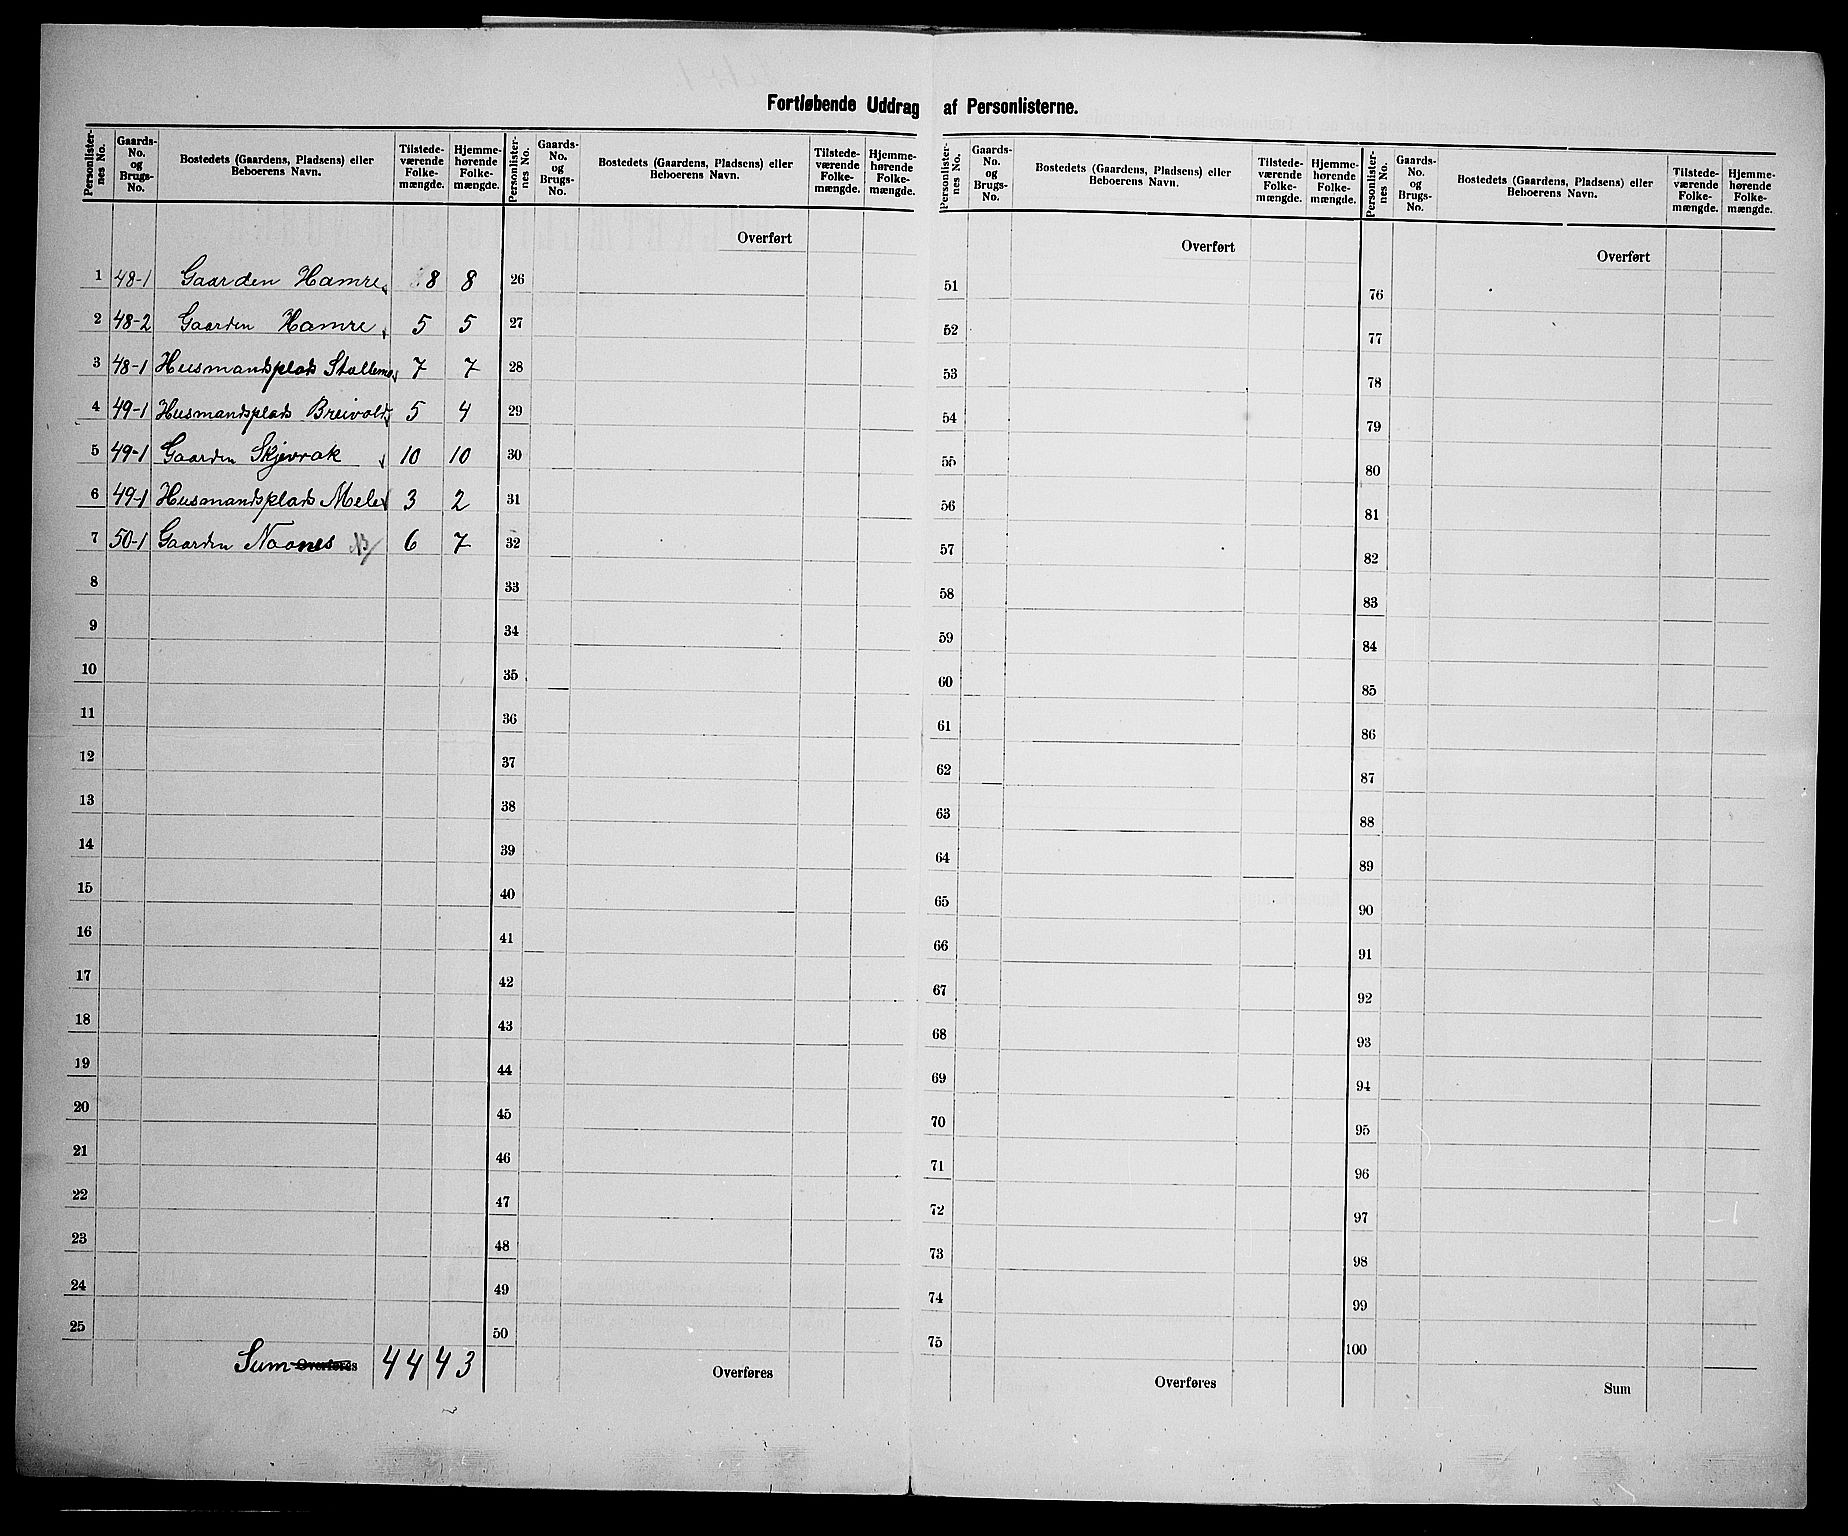 Fortløbende Uddrag af Personlisterne.
Personlister-nes No. Gaards-No. og Brugs-No. Bostedets (Gaardens, Pladsens) eller Beboerens Navn. Tilstede-værende Folke-mængde. Hjemme-hørende Folke-mængde.
1 48-1 Gaarden Hamre 8 8
2 48-2 Gaarden Hamre 5 5
3 48-1 Husmandsplads Stallemo 7 7
4 49-1 Husmandsplads Breivold 5 4
5 49-1 Gaarden Skjevrak 10 10
6 49-1 Husmandsplads Mele 3 2
7 50-1 Gaarden Naanes 6 7
8
9
10
11
12
13
14
15
16
17
18
19
20
21
22
23
24
25
Sum Overføres 44 43
Personlister-nes No. Gaards-No. og Brugs-No. Bostedets (Gaardens, Pladsens) eller Beboerens Navn. Tilstede-værende Folke-mængde. Hjemme-hørende Folke-mængde.
Overført
26
27
28
29
30
31
32
33
34
35
36
37
38
39
40
41
42
43
44
45
46
47
48
49
50
Overføres
Personlister-nes No. Gaards-No. og Brugs-No. Bostedets (Gaardens, Pladsens) eller Beboerens Navn. Tilstede-værende Folke-mængde. Hjemme-hørende Folke-mængde.
Overført
51
52
53
54
55
56
57
58
59
60
61
62
63
64
65
66
67
68
69
70
71
72
73
74
75
Overføres
Personlister-nes No. Gaards-No. og Brugs-No. Bostedets (Gaardens, Pladsens) eller Beboerens Navn. Tilstede-værende Folke-mængde. Hjemme-hørende Folke-mængde.
Overført
76
77
78
79
80
81
82
83
84
85
86
87
88
89
90
91
92
93
94
95
96
97
98
99
100
Sum